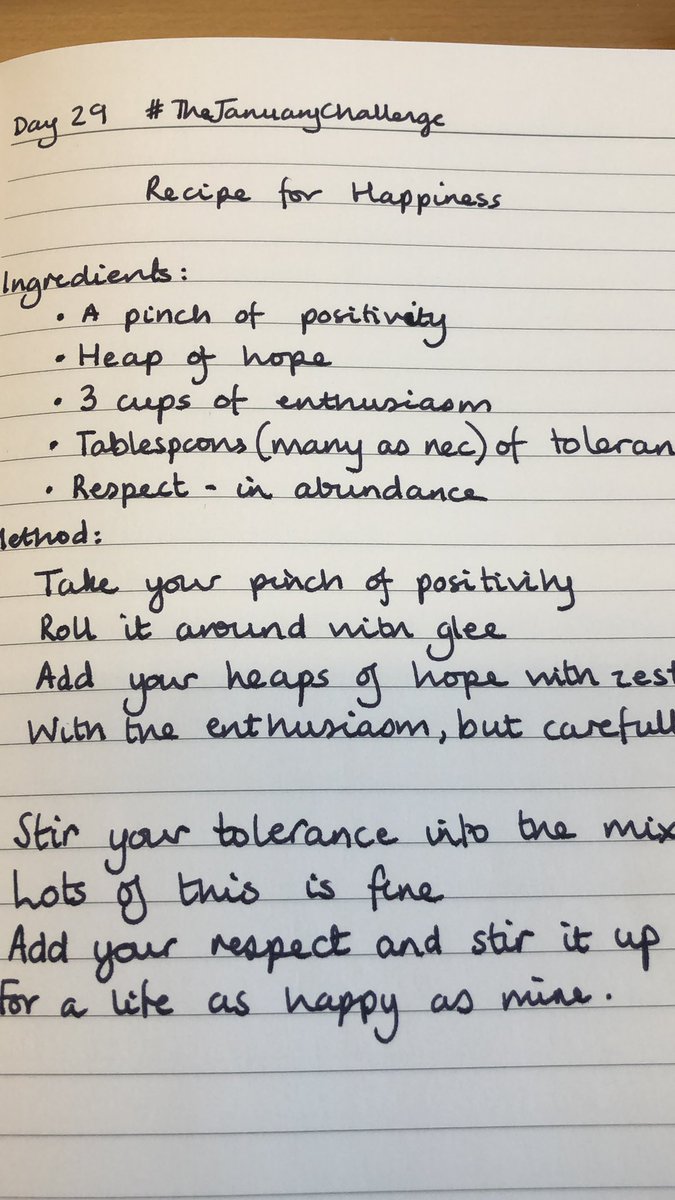 Day 29 #TheJanuaryChallenge
Recipe for Happiness
Ingredients:
• A pinch of positivity
• Heap of hope
• 3 cups of enthusiasm
• Tablespoons (many as nec) of toleran
• Respect - in abundance
Method:
Take your pinch of positivity
Roll it around with glee
Add your heaps of hope with zest
With the enthusiasm, but carefull
Stir your tolerance into the mix
Lots of this is fine
Add your respect and stir it up
For a life as happy as mine.